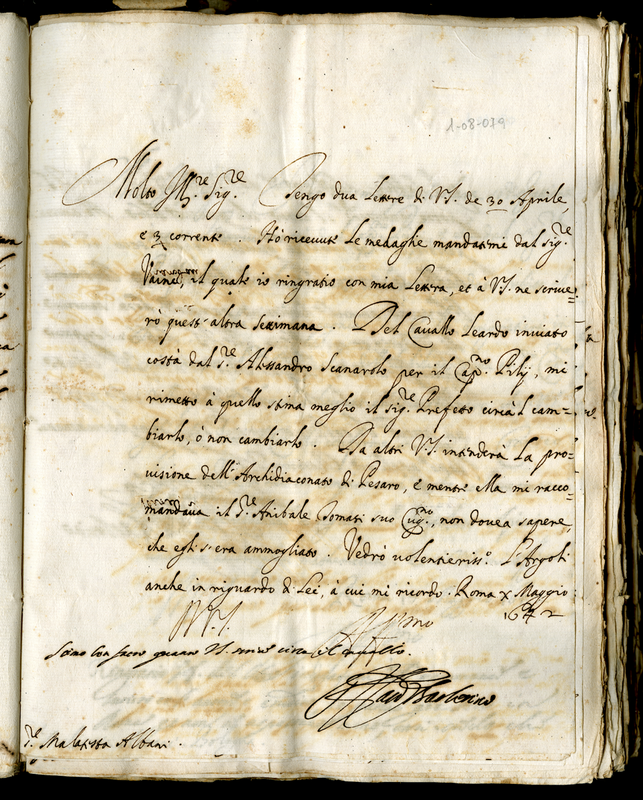 1-08-039
Molto Ill.re Sig.re Tengo dua Lettere di V.S. de 30 Aprile,
e 3 corrente. Hò riceuute Le medaghe mandatemi dal Sig.re
Vaini, il quale io ringratio con mia Lettera, et à V.S. ne scriue=
rò quest'altra settimana. Del Cauallo Leardo inuiato
costà dal S.re Alessandro Scanarolo per il Cap.no Pilij, mi
rimetto à quello stima meglio il Sig.re Prefetto circa'l cam=
biarlo, ò non cambiarlo. Da altri V.S. intenderà La pro=
uisione dell'Archidiaconato di Pesaro, e mentre ella mi racco=
mandaua il S.re Anibale Tomati suo Cug.no, non douea sapere,
che egli s'era ammogliato. Vedrò uolentieriss.o L'Argoli
anche in riguardo di Lei, à cui mi ricordo. Roma X Maggio
1642
Di V.S.
Sono con sacro quanto V.S. scriue circa il
Card Barberino
S.re Malatesta Albani.